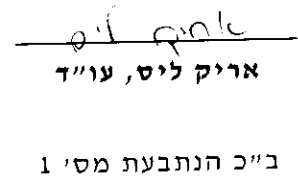 אריק ליס
אריק ליס, עו״ד
ב״כ הנתבעת מס׳ 1